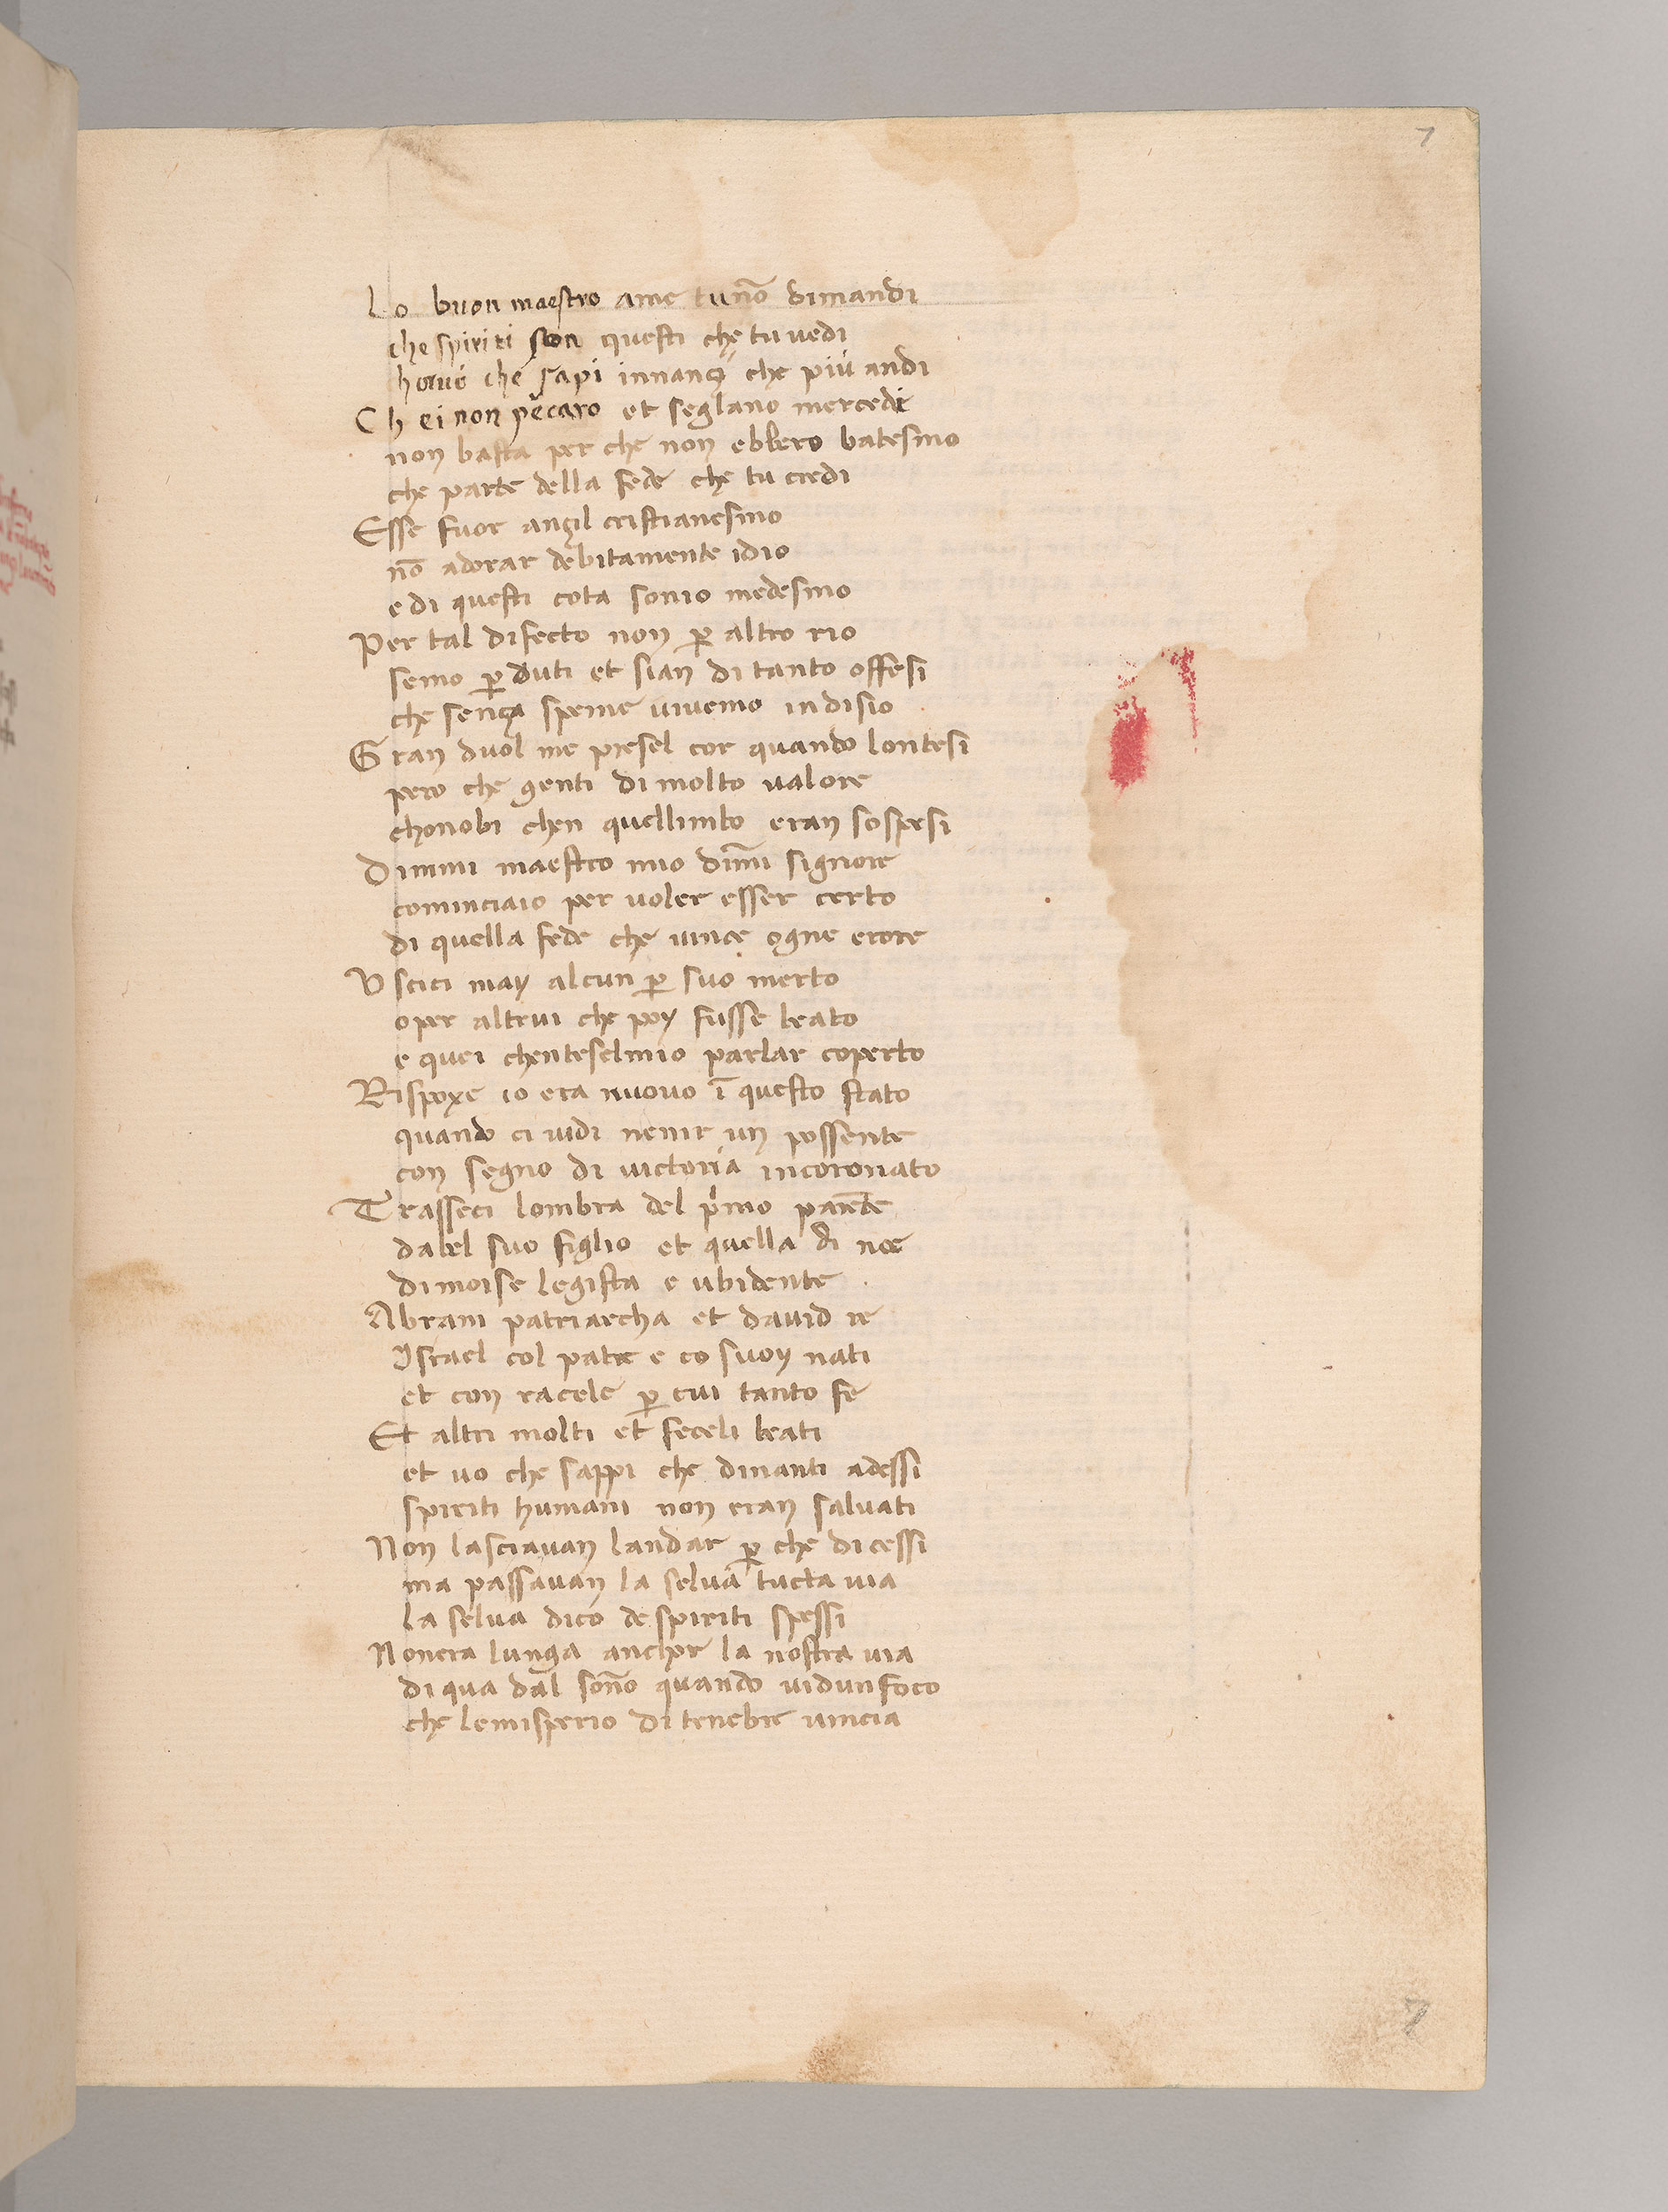 7
Lo buon maestro ame tu nō dimandi
che spiriti son questi che tu uedi
hor uo che sapi innanç che più andi
Ch ei non pecaro et seglano mercedi
non basta per che non ebbero batesmo
che parte della fede che tu credi
Esse fuor ançil cristianesmo
nō adorar debitamente idio
e di questi cota sonio medesmo
Per tal difecto non p̱ altro rio
semo p̱duti et sian di tanto offesi
che sença speme uiuemo indisio
Gran duol me presel cor quando lontesi
pero che genti di molto ualore
chonobi chen quellimbo eran sospesi
Dimmi maestro mio dim̄i signore
cominciaio per uoler esser certo
di quella fede che uince ogne erore
Vscici may alcun p̱ suo merto
oper altrui che poy fusse beato
e quei chenteselmio parlar coperto
Rispoxe io era nuouo ī questo stato
quando ci uidi uenir un possente
con segno di uictoria incoronato
Trasseci lombra del pͥmo parēte
dabel suo figlio et quella di noe
di moise legista e ubidente
Abram patriarcha et dauid re
Israel col patre e co suoy nati
et con racele p̱ cui tanto fe
Et altri molti et feceli beati
et uo che sappi che dinanti adessi
spiriti humani non eran saluati
Non lasciauan landar p̱ che dicessi
ma passauan la selua tucta uia
la selua dico de spiriti spessi
Nonera lunga anchor la nostra uia
di qua dal sōno quando uidunfoco
che lemisperio di tenebre uincia
7